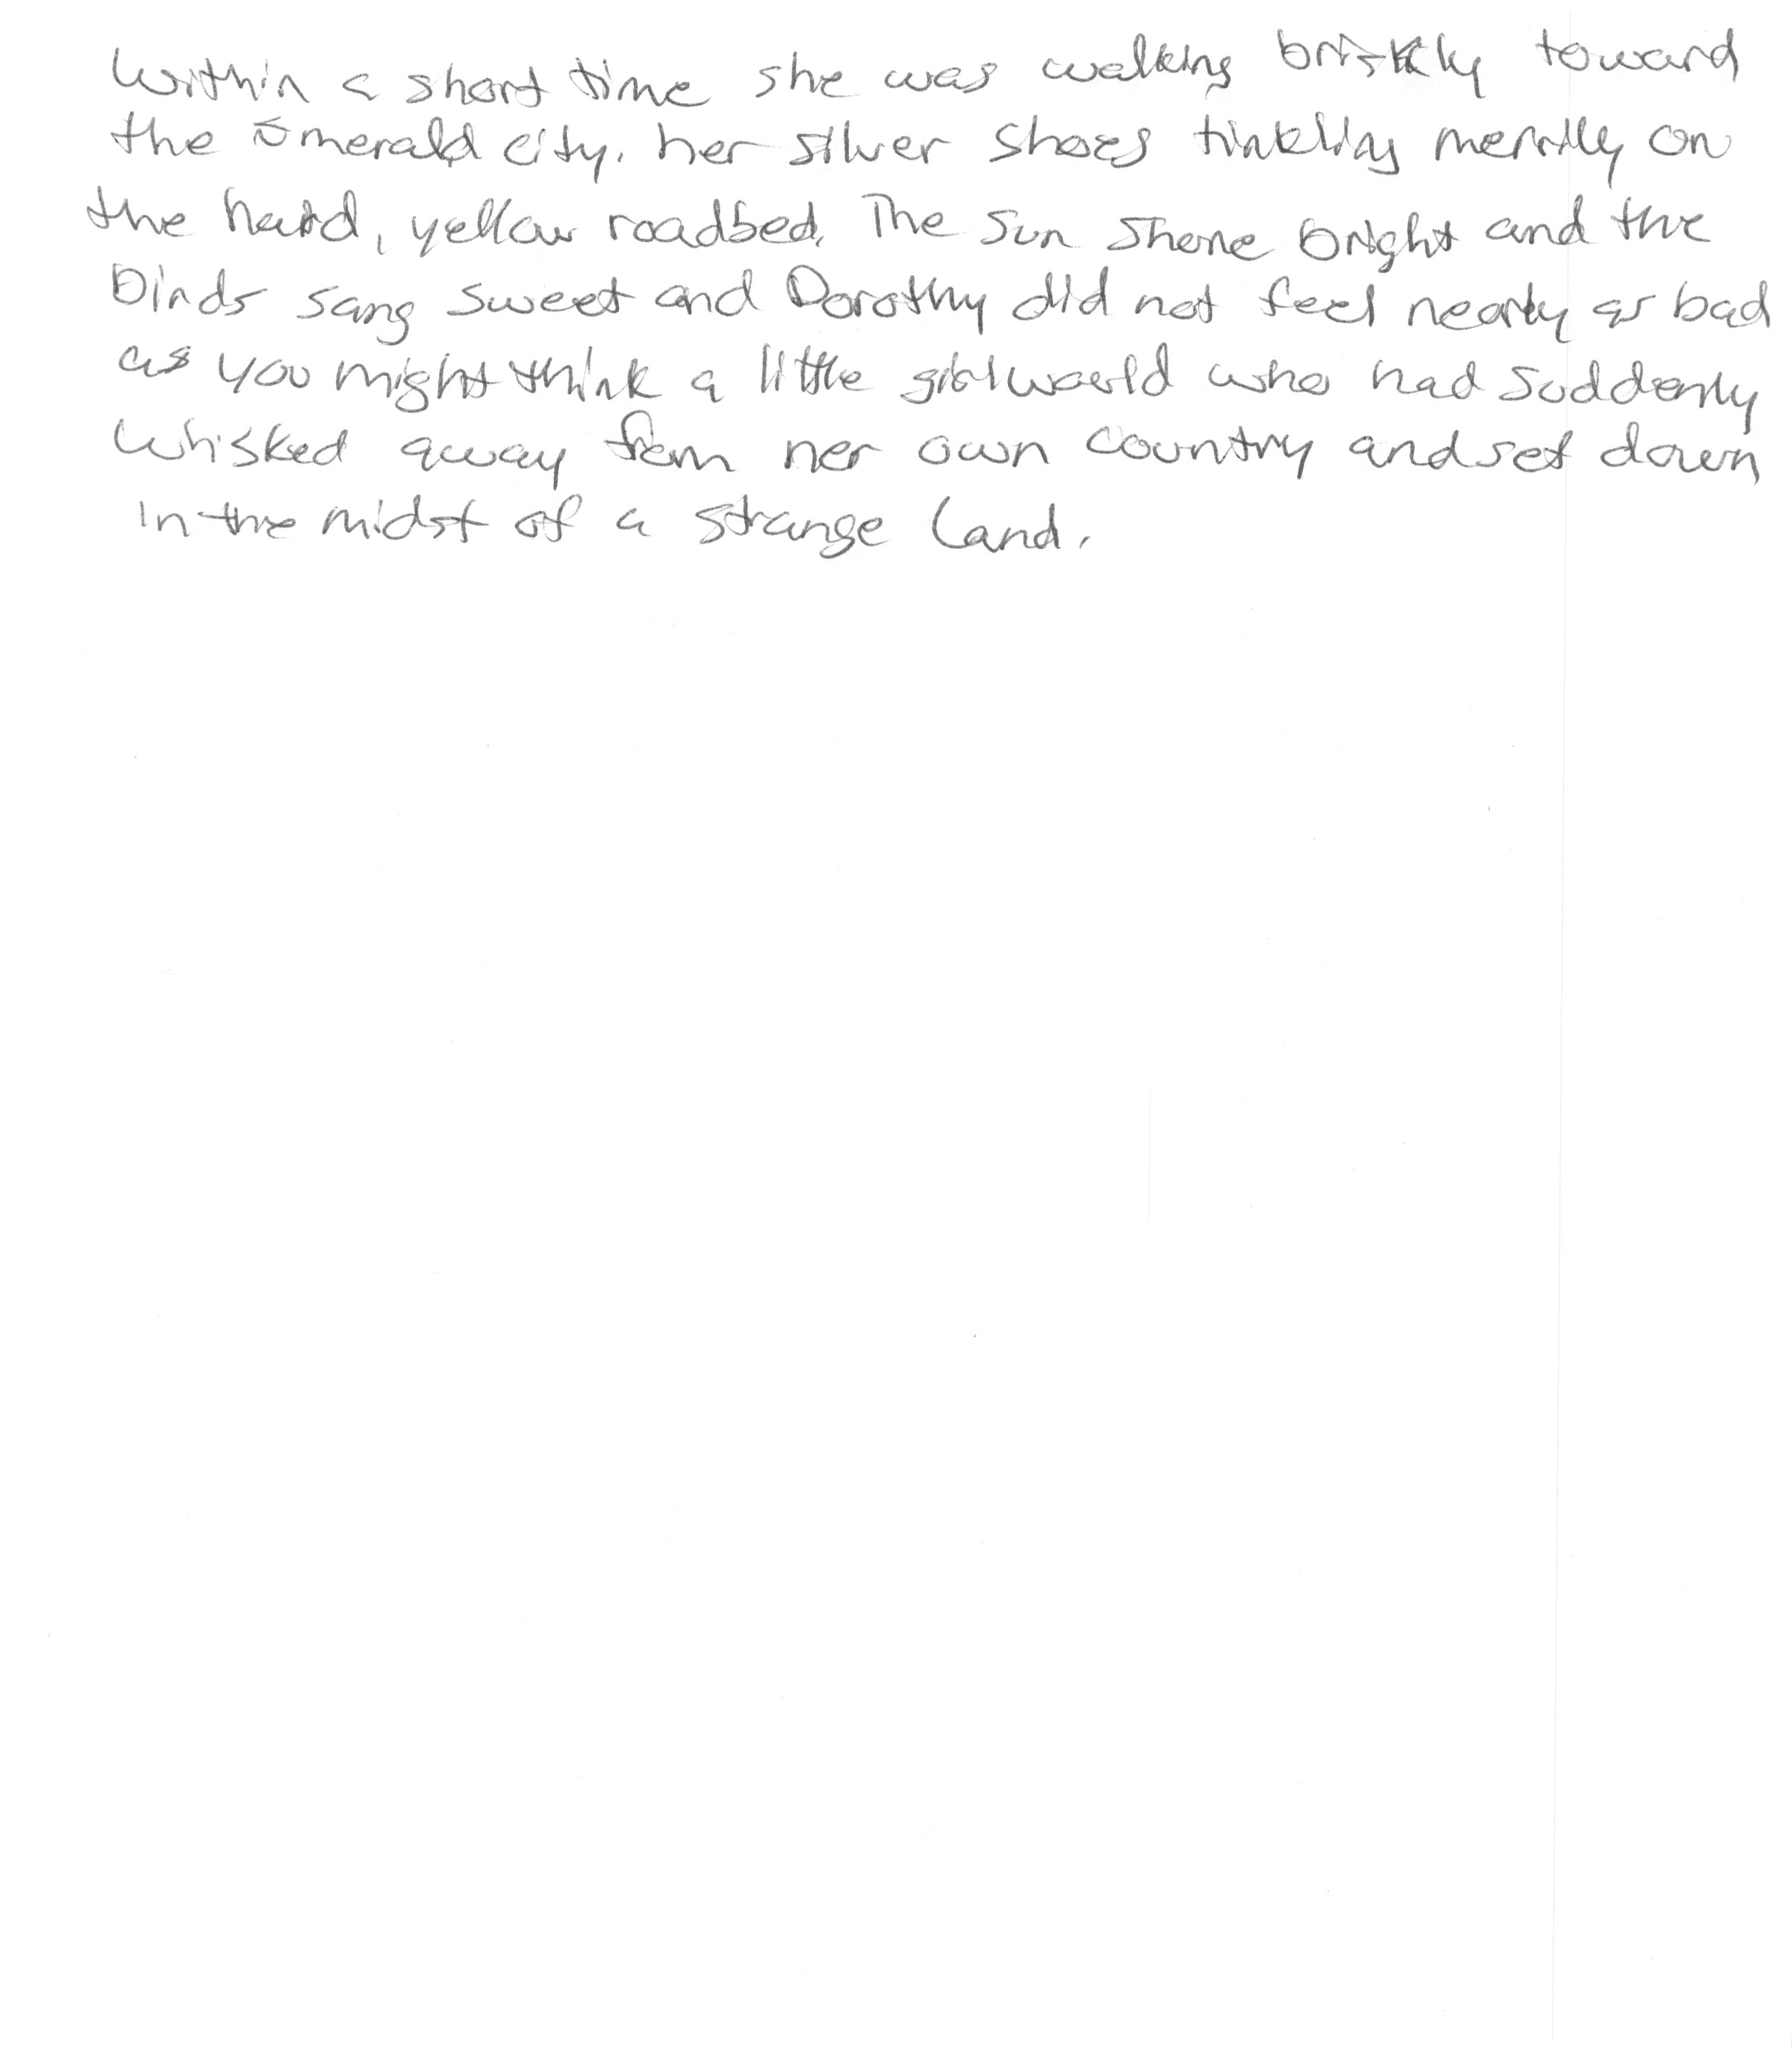 Within a short time she was walking briskly toward
the Emerald city. her silver shoes tinkling merrily on
the hard, yellow roadbed. The sun shone bright and the
birds sang sweet and Dorothy did not feel nearly as bad
as you might think a little girl would who had suddenly
whisked away from her own country and set down
in the midst of a strange land.